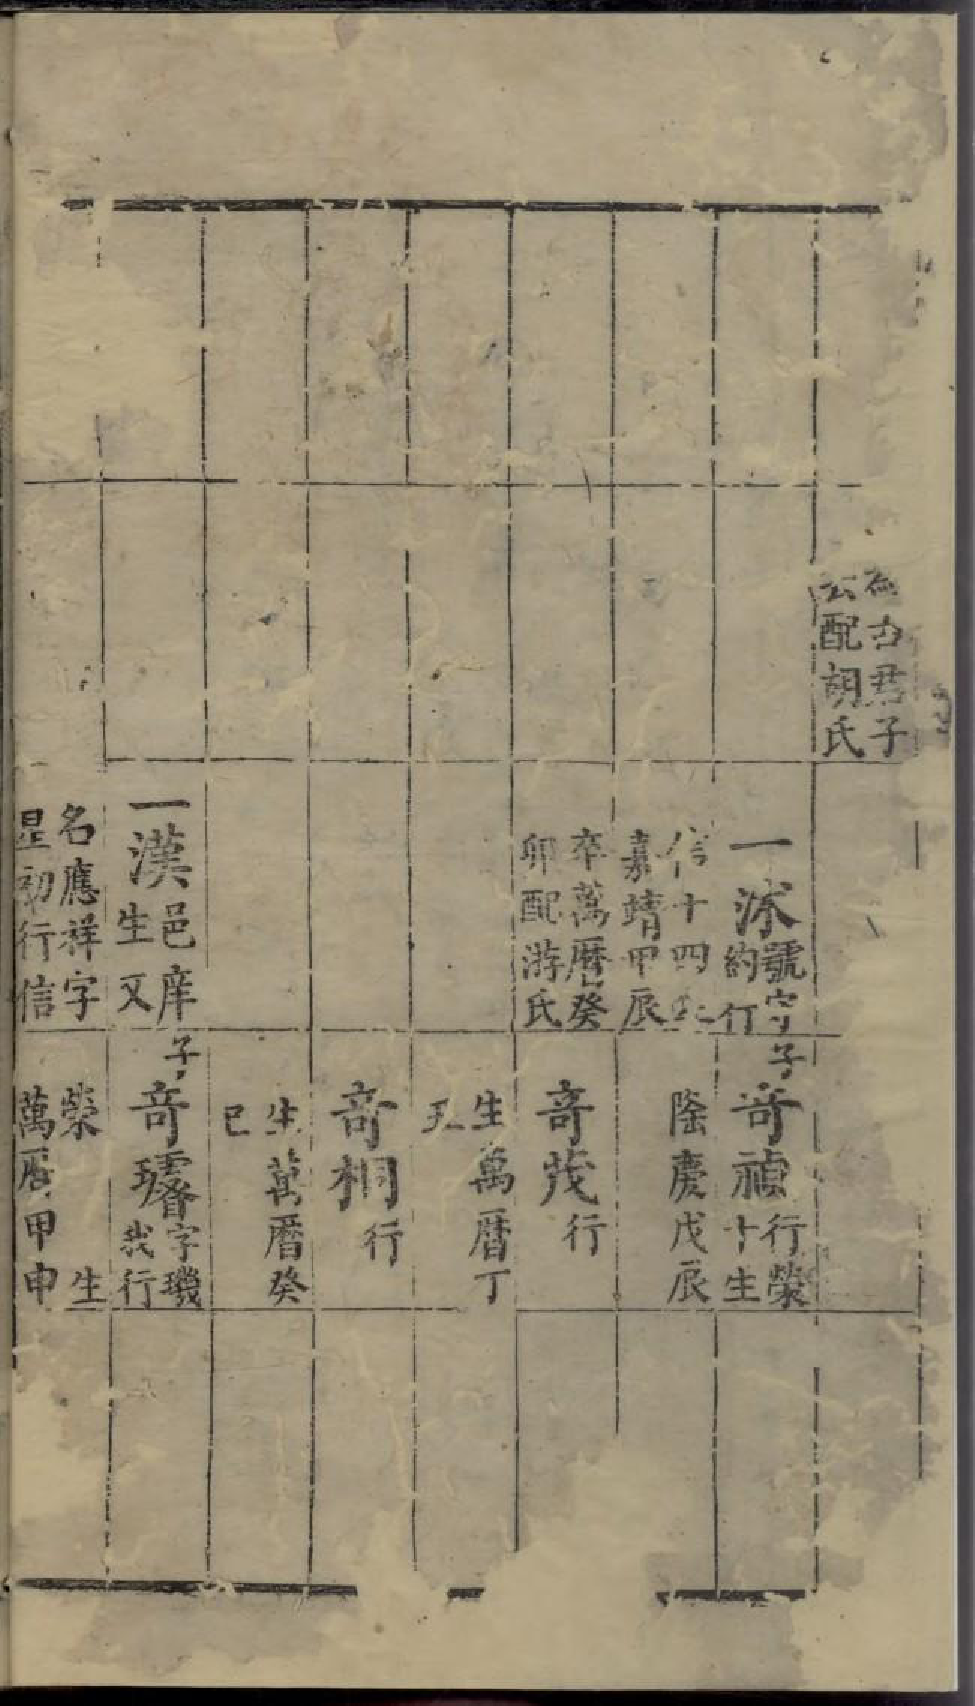 古君子
公配胡氏
一沭
號字
約行
信十四生
嘉靖甲辰
卒萬曆癸
卯配游氏
子奇禎
行榮
十生
隆慶戊辰
奇茂行
生萬曆丁
丑
奇桐行
生萬曆癸
巳
一漢
邑庠
生又
名應祥字
星初行信
子奇璿
字璣
我行
榮 生
萬曆甲申